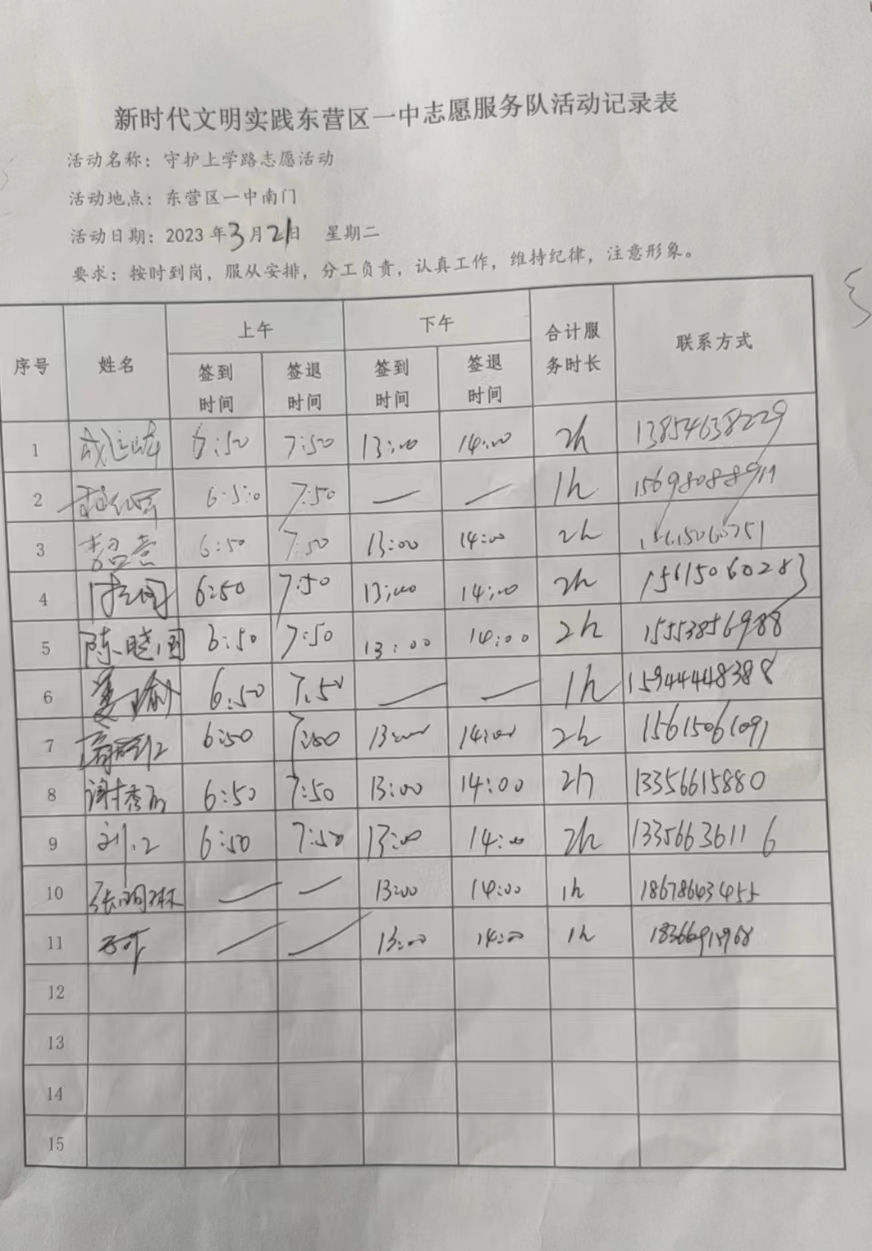 新时代文明实践东营区一中志愿服务队活动记录表
活动名称：守护上学路志愿活动
活动地点：东营区一中南门
活动日期：2023年3月21日 星期二
要求：按时到岗，服从安排，分工负责，认真工作，维持纪律，注意形象。
序号 姓名 上午 下午 合计服务时长 联系方式
签到时间 签退时间 签到时间 签退时间
1 6:50 7:50 13:00 14:00 2h 13854638229
2 6:50 7:50 — — 1h
3 6:50 7:50 13:00 14:00 2h
4 6:50 7:50 13:00 14:00 2h 15615060283
5 陈晓国 6:50 7:50 13:00 14:00 2h 15553856988
6 姜瑜 6:50 7:50 — — 1h 15944448388
7 6:50 7:50 13:00 14:00 2h 15615061091
8 谢秀 6:50 7:50 13:00 14:00 2h 13356615880
9 6:50 7:50 13:00 14:00 2h 13356636116
10 张 — — 13:00 14:00 1h 18678643455
11 — — 13:00 14:00 1h
12
13
14
15